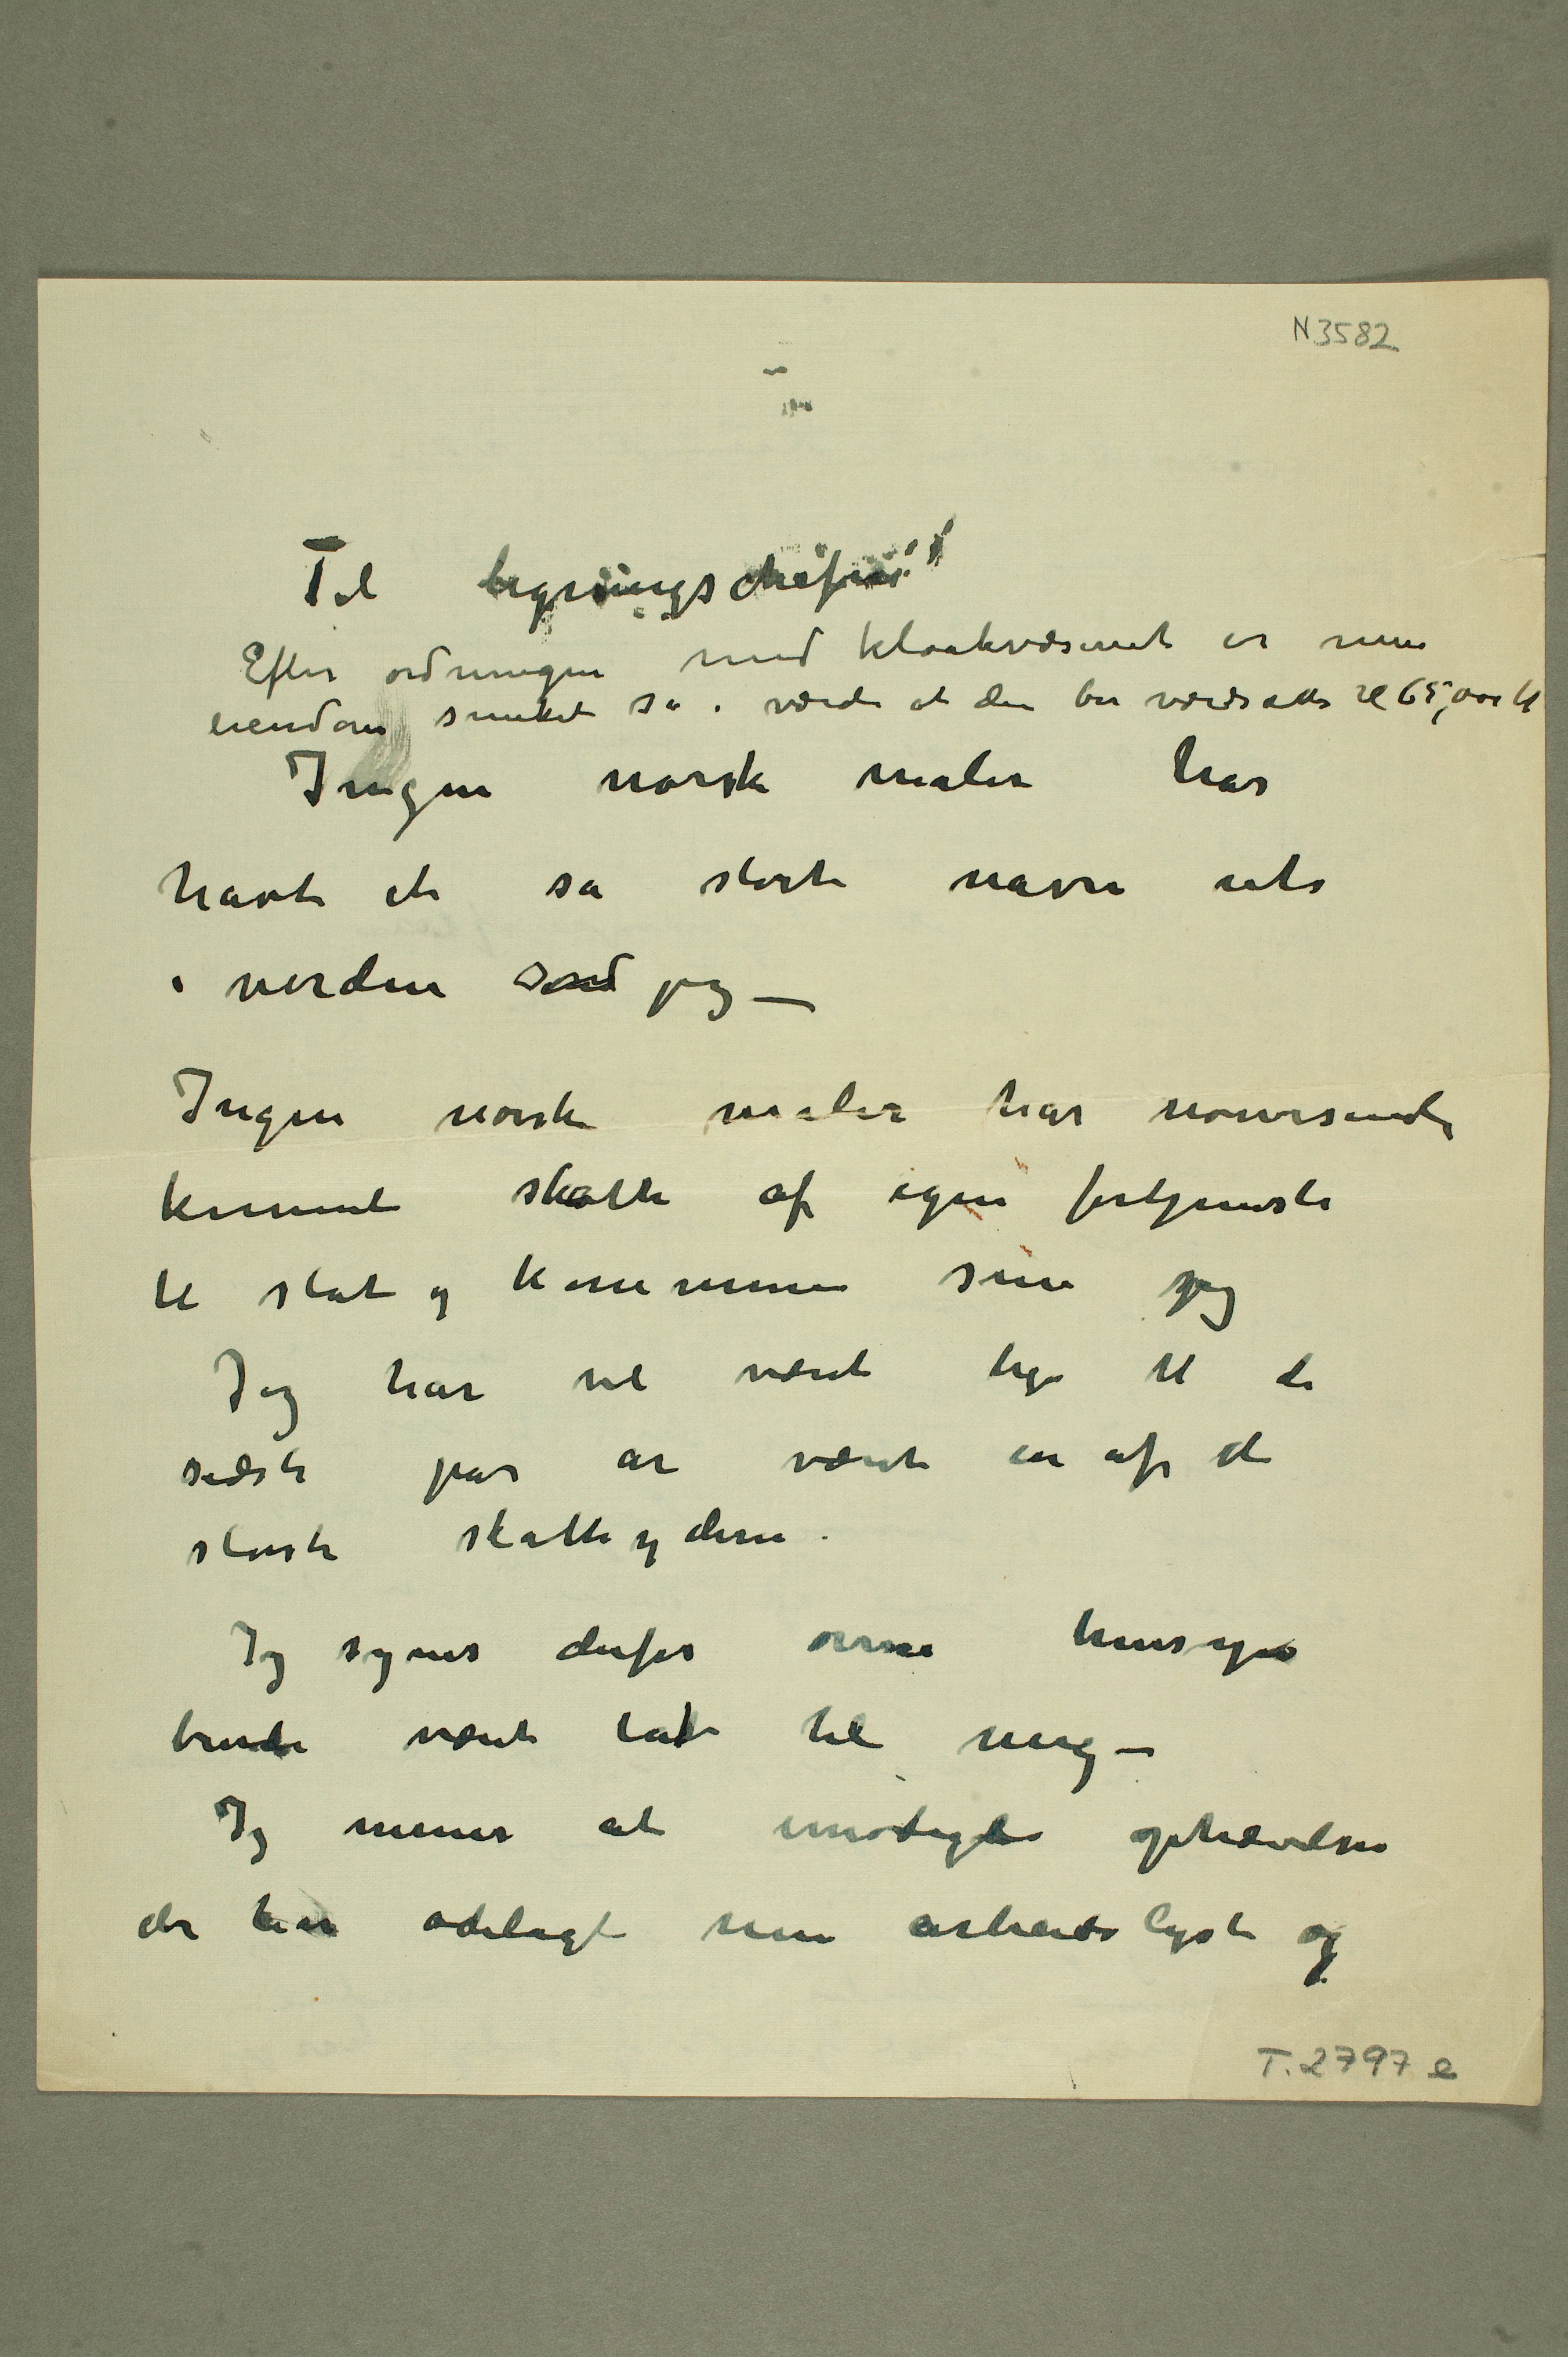 N 3582
Til ligningschefen!!
Efter ordningen med kloakvæsenet er min
eiendom sunket så i værdi at den bør værdsættes til 65,000 kr
Ingen norsk maler har
havt et så stort navn ute
i verden som jeg –
Ingen norsk maler har
kunnet skatte af egen fortjeneste
til stat og kommune som jeg
Jeg har vel været lige til de
sidste par år været en af de
største skatteydere.
Jeg synes derfor hensyn
burde været tat til mig –
Jeg mener at unødige ophævelser
der har ødelagt min arbeidslyst og
T. 2797 e